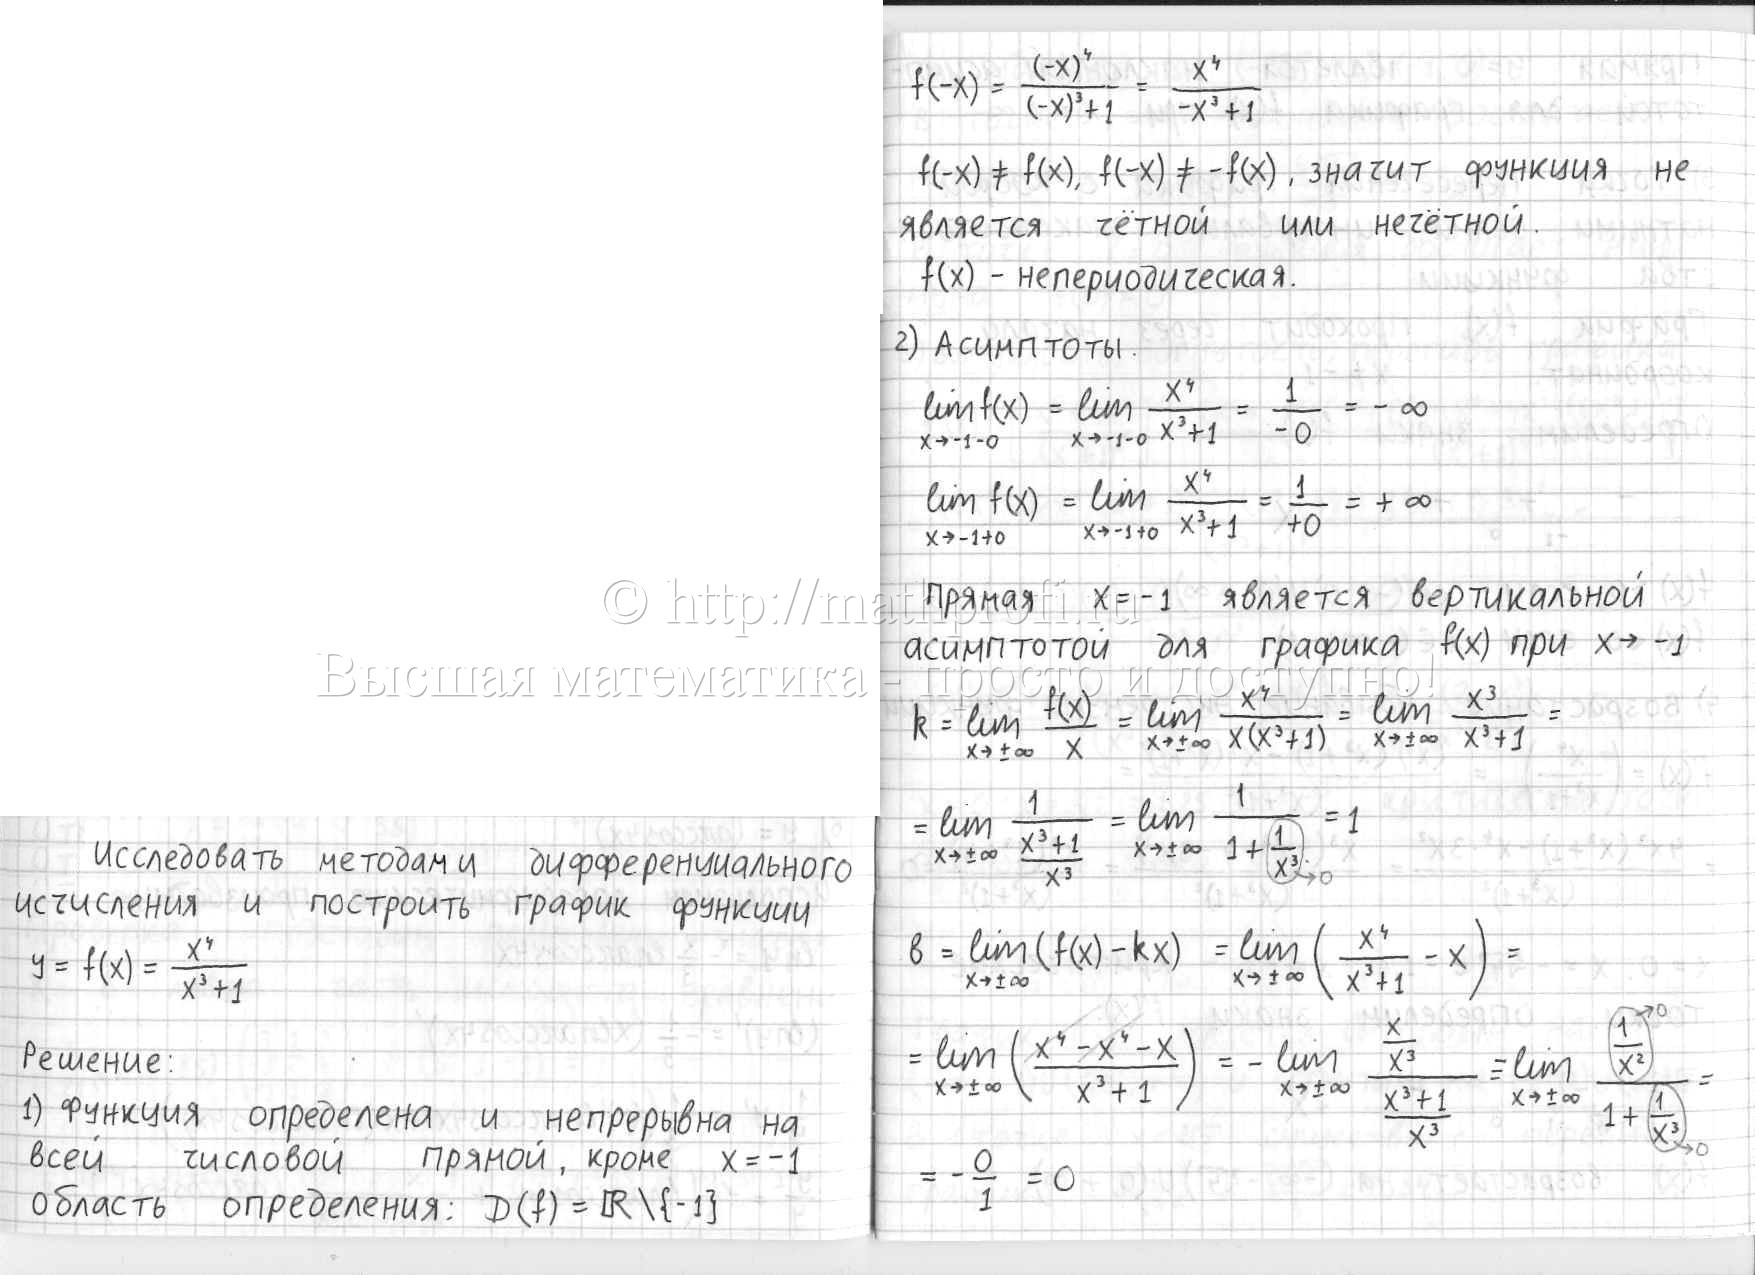 Исследовать методами дифференциального
исчисления и построить график функции
y = f(x) = x⁴/(x³+1)
Решение:
1) Функция определена и непрерывна на
всей числовой прямой, кроме x = -1
область определения: D(f) = ℝ\{-1}
f(-x) = (-x)⁴/((-x)³+1) = x⁴/(-x³+1)
f(-x) ≠ f(x), f(-x) ≠ -f(x), значит функция не
является чётной или нечётной.
f(x) - непериодическая.
2) Асимптоты.
lim_{x→-1-0} f(x) = lim_{x→-1-0} x⁴/(x³+1) = 1/(-0) = -∞
lim_{x→-1+0} f(x) = lim_{x→-1+0} x⁴/(x³+1) = 1/(+0) = +∞
© http://mathprofi.ru
Прямая x = -1 является вертикальной
асимптотой для графика f(x) при x→ -1
Высшая математика - просто и доступно!
k = lim_{x→±∞} f(x)/x = lim_{x→±∞} x⁴/(x(x³+1)) = lim_{x→±∞} x³/(x³+1) =
= lim_{x→±∞} 1/((x³+1)/x³) = lim_{x→±∞} 1/(1 + 1/x³ →0) = 1
b = lim_{x→±∞} (f(x) - kx) = lim_{x→±∞} (x⁴/(x³+1) - x) =
= lim_{x→±∞} ((x⁴ - x⁴ - x)/(x³+1)) = - lim_{x→±∞} (x/x³)/((x³+1)/x³) = lim_{x→±∞} (1/x² →0)/(1 + 1/x³ →0) =
= - 0/1 = 0